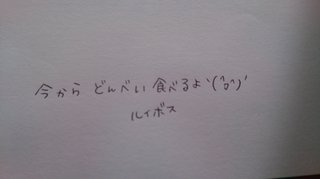 今から どんべい 食べるよ`(^o^)´
ルイボス